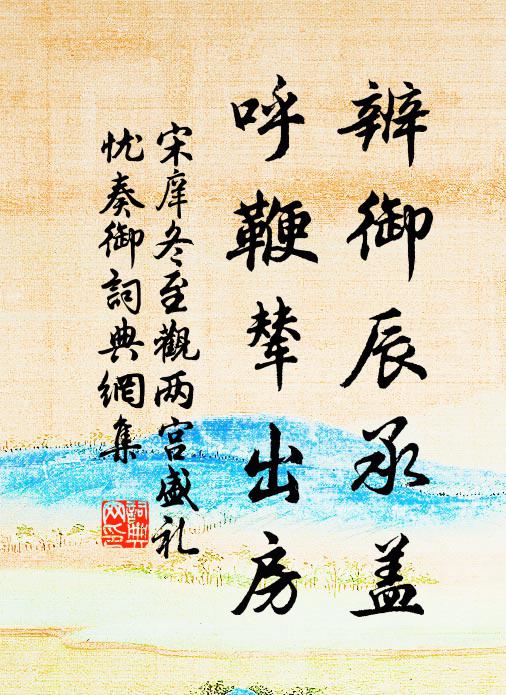 辨御辰承盖
呼鞭辇出房
宋庠冬至觀两宫盛礼
忱奏御詞典網集
詞典
网印